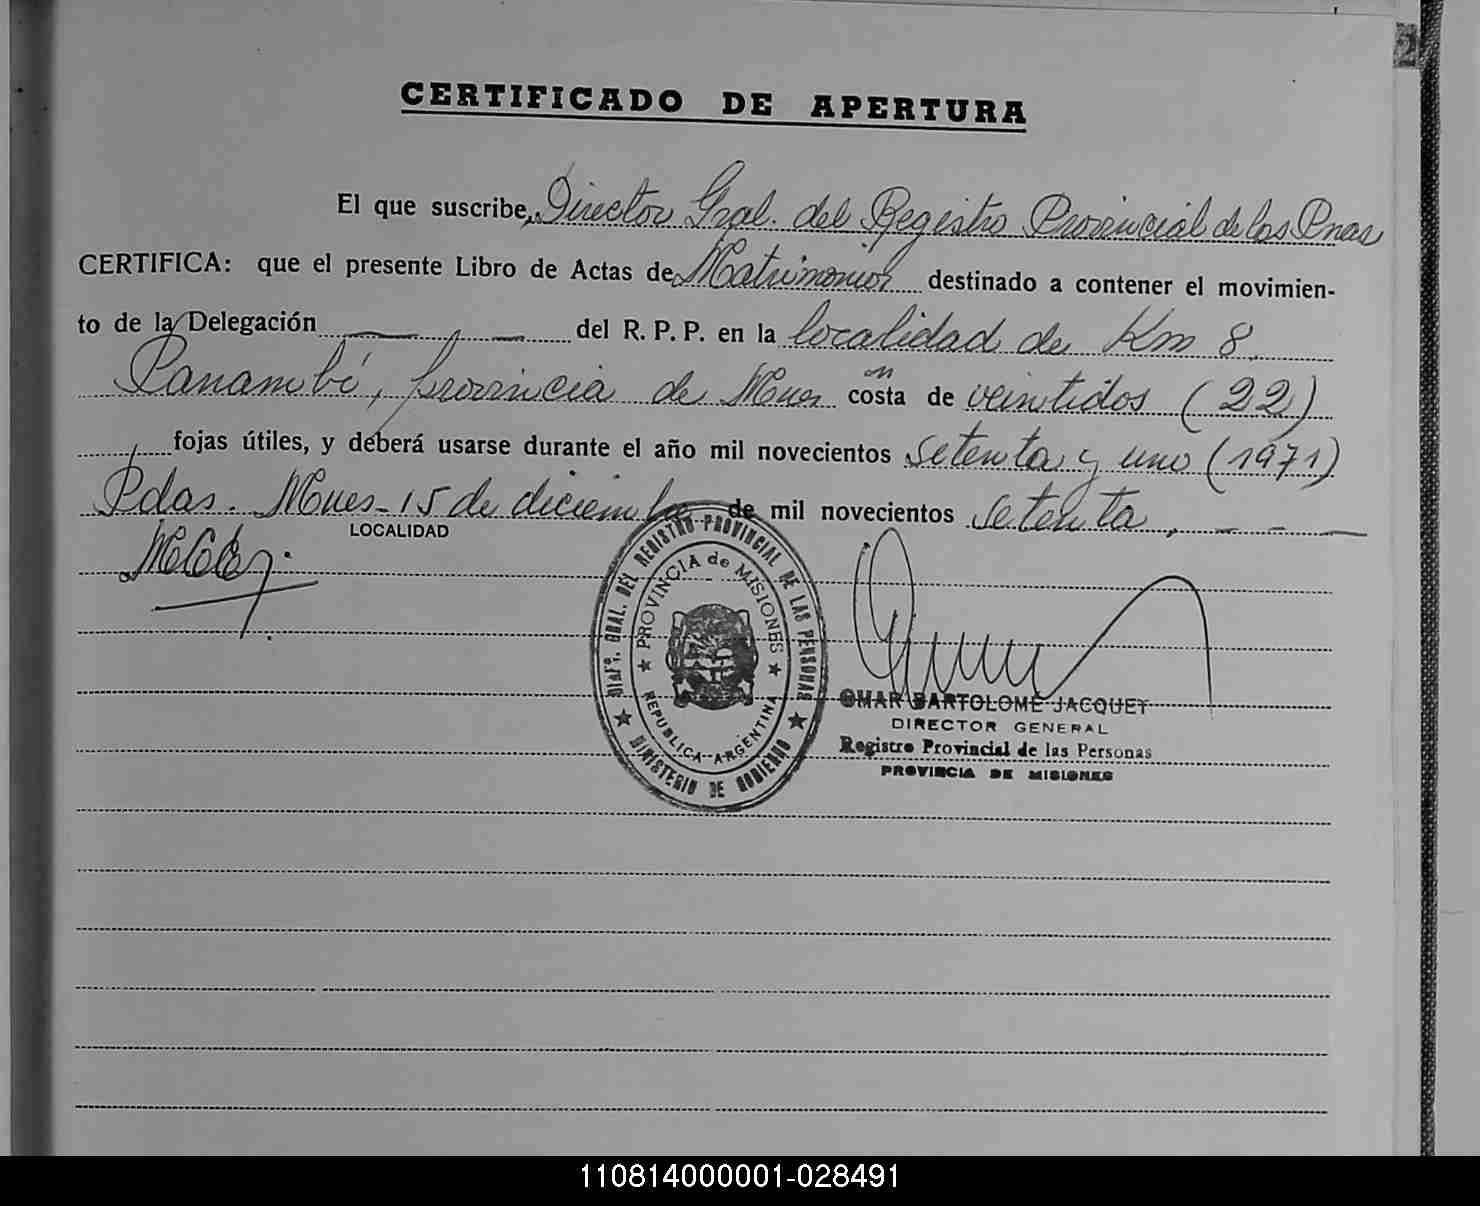 CERTIFICADO DE APERTURA
El que suscribe, Director Gral. del Registro Provincial de las Pnas
CERTIFICA: que el presente Libro de Actas de Matrimonios destinado a contener el movimien-
to de la Delegación del R. P. P. en la localidad de Km 8.
Panambí, provincia de Mnes consta de veintidos (22)
fojas útiles, y deberá usarse durante el año mil novecientos setenta y uno (1971)
Pdas. Mnes - 15 de diciembre de mil novecientos setenta,
LOCALIDAD
DIRº. GRAL. DEL REGISTRO PROVINCIAL DE LAS PERSONAS
PROVINCIA de MISIONES
REPUBLICA ARGENTINA
MINISTERIO DE GOBIERNO
OMAR BARTOLOME JACQUET
DIRECTOR GENERAL
Registro Provincial de las Personas
PROVINCIA DE MISIONES
110814000001-028491